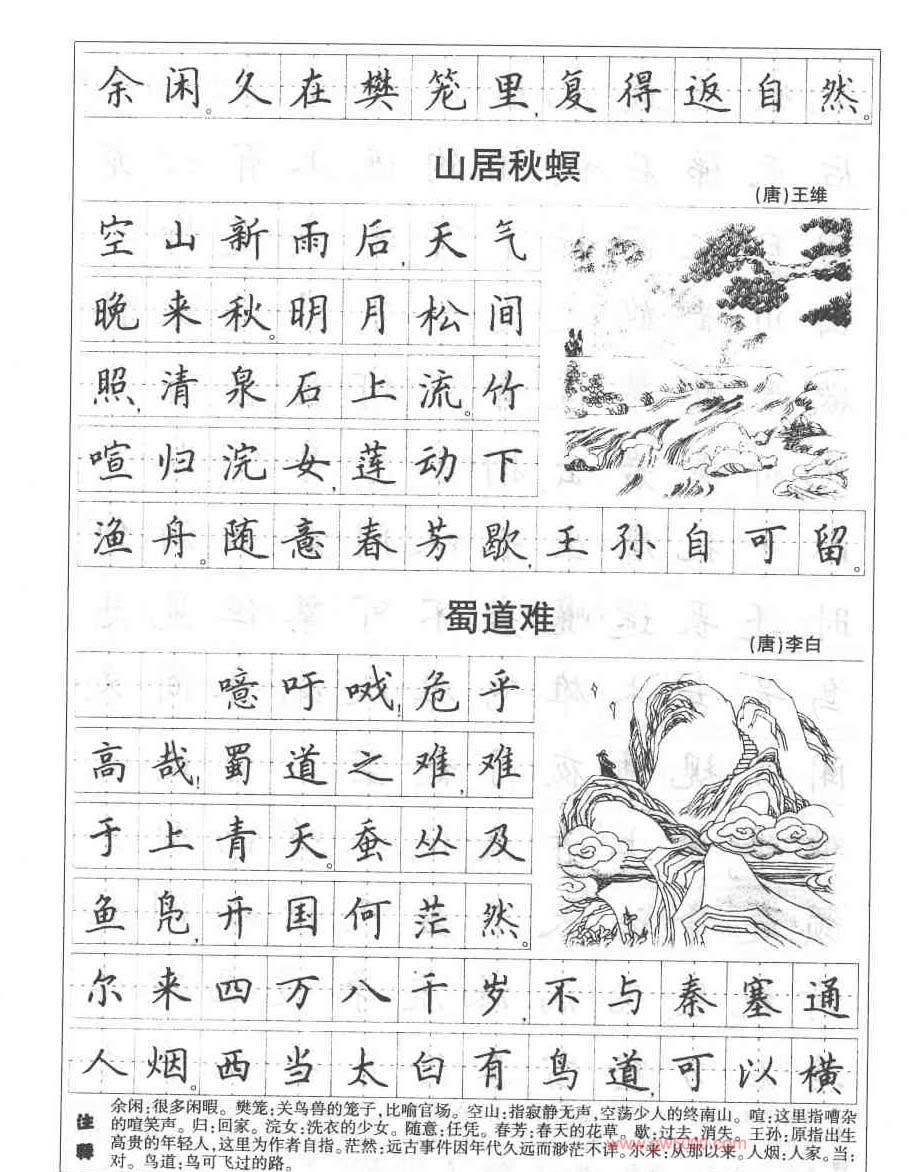 余闲。久在樊笼里,复得返自然。
山居秋螟
(唐)王维
空山新雨后,天气
晚来秋。明月松间
照,清泉石上流。竹
喧归浣女,莲动下
渔舟。随意春芳歇,王孙自可留。
蜀道难
(唐)李白
噫吁嚱!危乎
高哉!蜀道之难,难
于上青天。蚕丛及
鱼凫,开国何茫然。
尔来四万八千岁,不与秦塞通
人烟。西当太白有鸟道,可以横
注释
余闲:很多闲暇。樊笼:关鸟兽的笼子,比喻官场。空山:指寂静无声,空荡少人的终南山。喧:这里指嘈杂
的喧笑声。归:回家。浣女:洗衣的少女。随意:任凭。春芳:春天的花草。歇:过去,消失。王孙:原指出生
高贵的年轻人,这里为作者自指。茫然:远古事件因年代久远而渺茫不详。尔来:从那以来。人烟:人家。当:
对。鸟道:鸟可飞过的路。